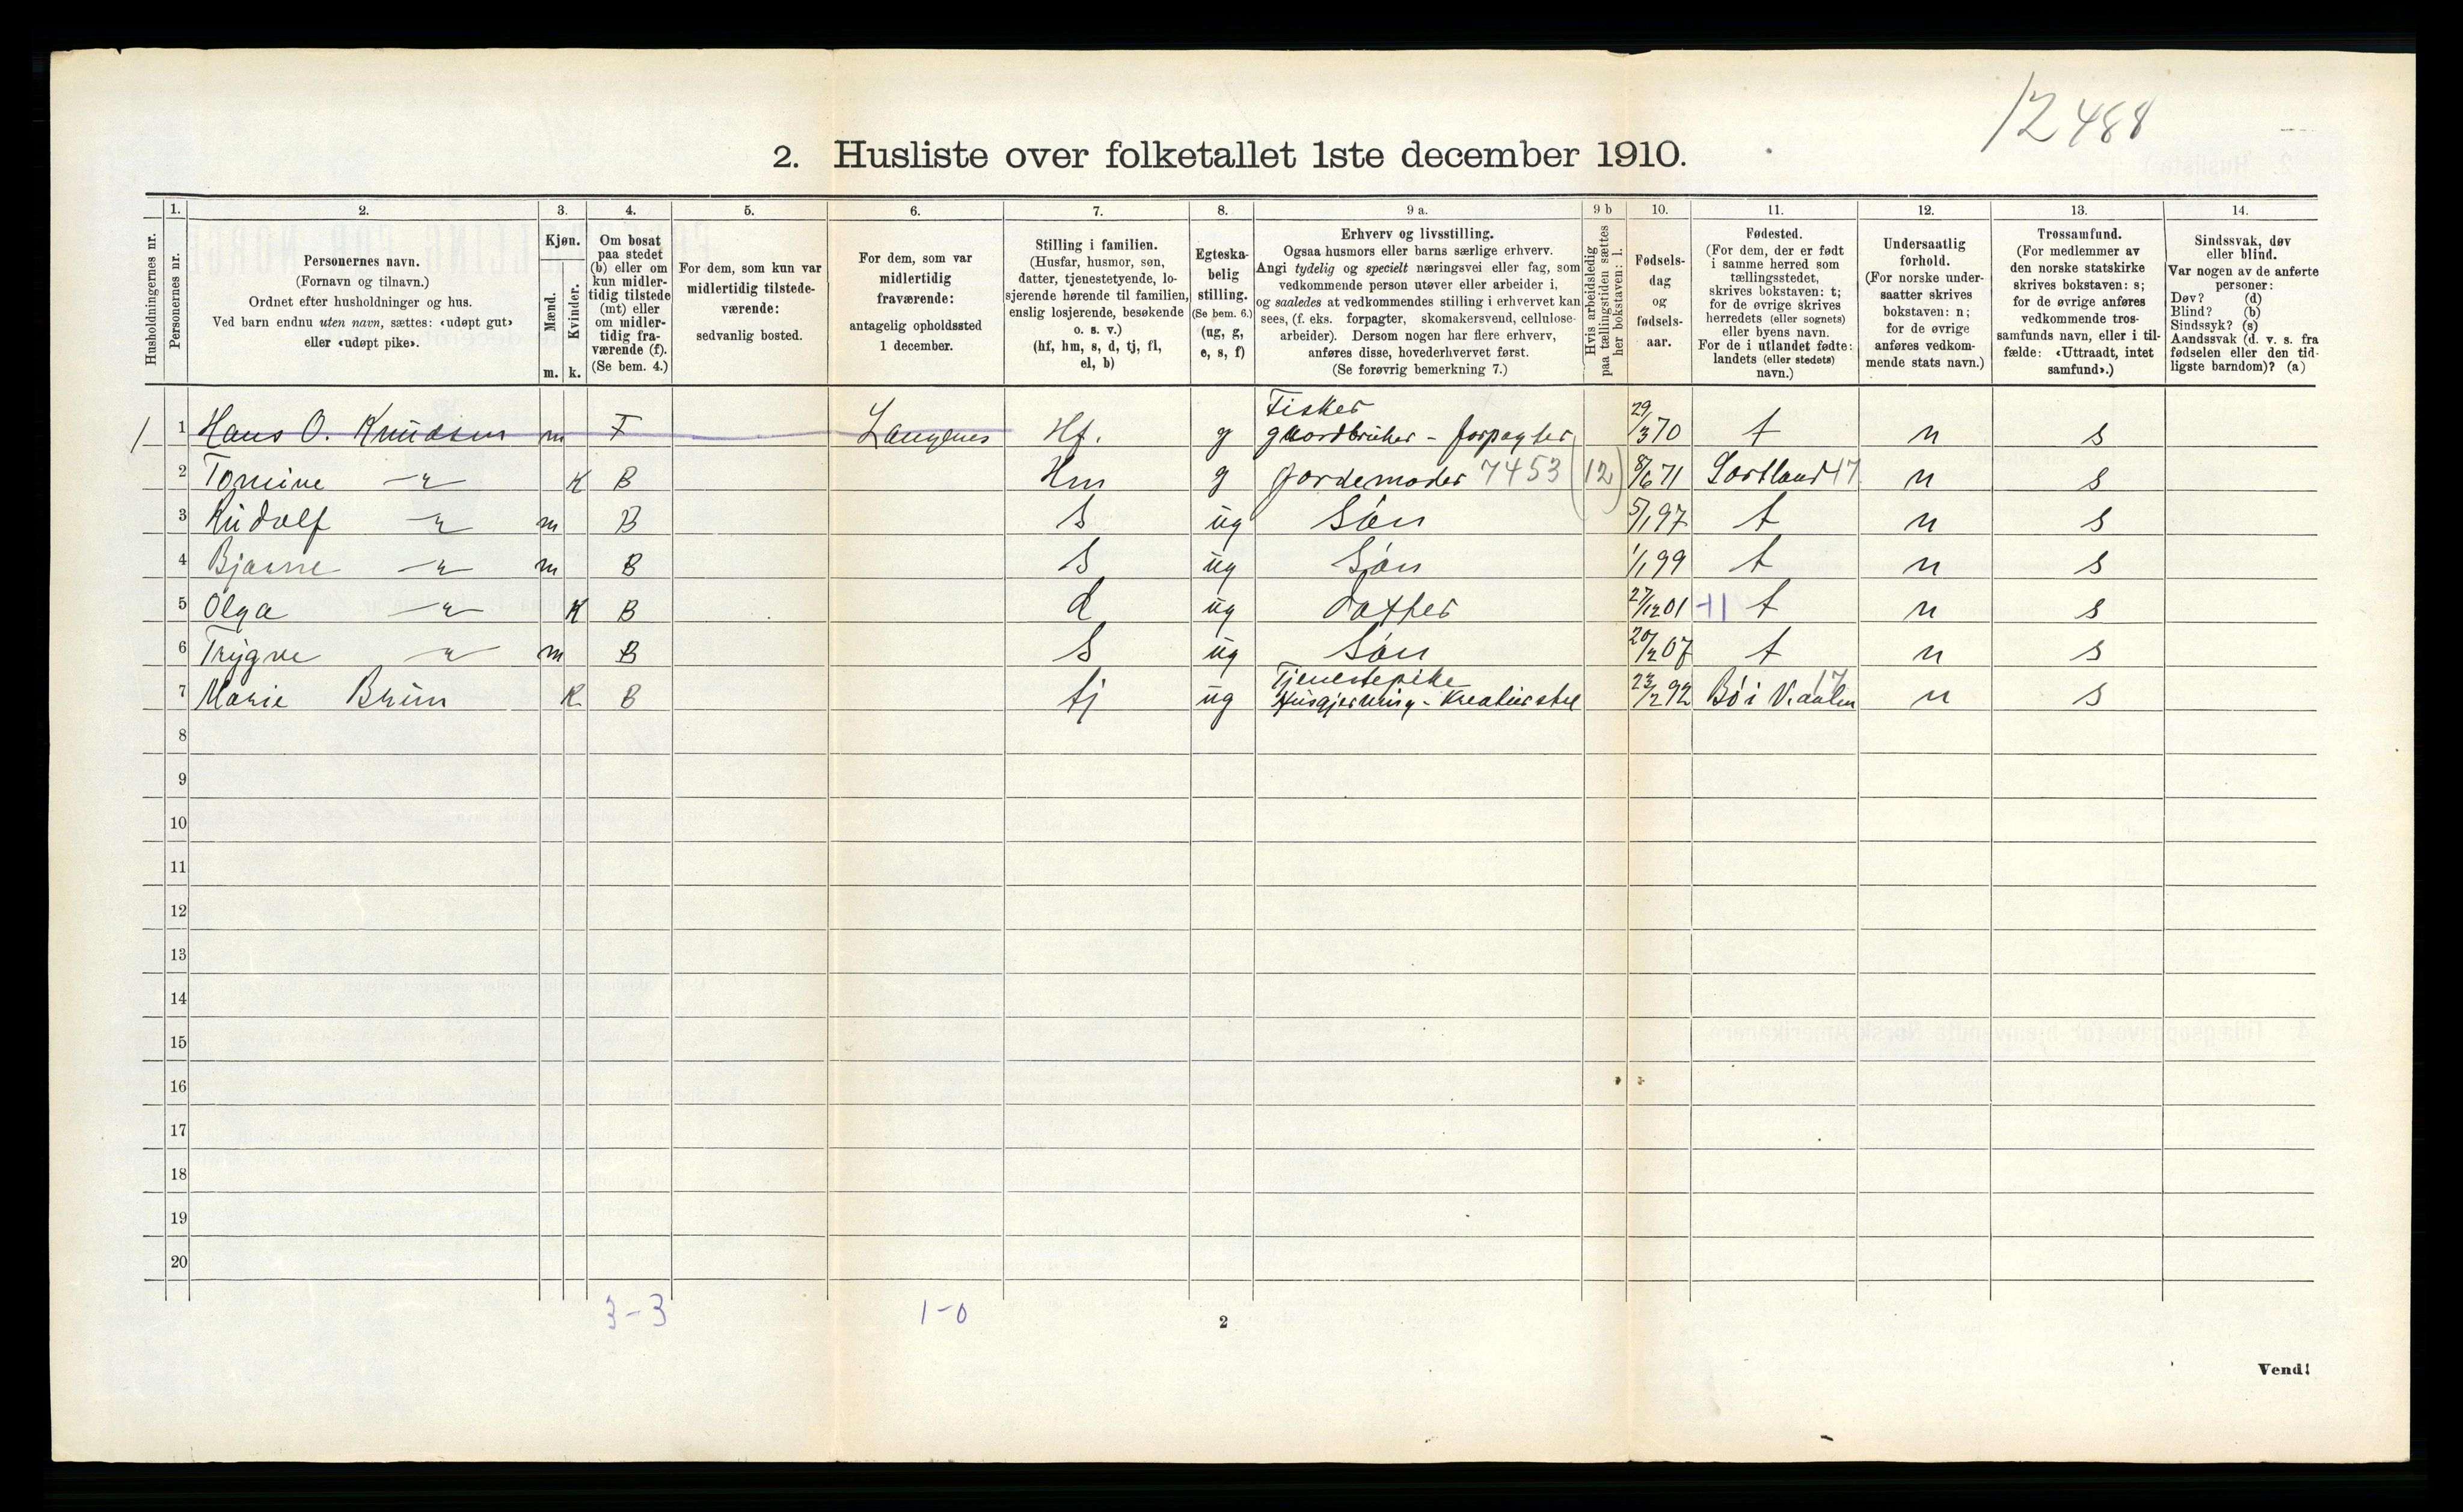 12 488
2. Husliste over folketallet 1ste december 1910.
Husholdningernes nr.
1. Personernes nr.
2. Personernes navn.
(Fornavn og tilnavn.)
Ordnet efter husholdninger og hus.
Ved barn endnu uten navn, sættes: «udøpt gut»
eller «udøpt pike».
3. Kjøn.
Mænd. m.
Kvinder. k.
4. Om bosat
paa stedet
(b) eller om
kun midler-
tidig tilstede
(mt) eller
om midler-
tidig fra-
værende (f).
(Se bem. 4.)
5. For dem, som kun var
midlertidig tilstede-
værende:
sedvanlig bosted.
6. For dem, som var
midlertidig
fraværende:
antagelig opholdssted
1 december.
7. Stilling i familien.
(Husfar, husmor, søn,
datter, tjenestetyende, lo-
sjerende hørende til familien,
enslig losjerende, besøkende
o. s. v.)
(hf, hm, s, d, tj, fl,
el, b)
8. Egteska-
belig
stilling.
(Se bem. 6.)
(ug, g,
e, s, f)
9 a. Erhverv og livsstilling.
Ogsaa husmors eller barns særlige erhverv.
Angi tydelig og specielt næringsvei eller fag, som
vedkommende person utøver eller arbeider i,
og saaledes at vedkommendes stilling i erhvervet kan
sees, (f. eks. forpagter, skomakersvend, cellulose-
arbeider). Dersom nogen har flere erhverv,
anføres disse, hovederhvervet først.
(Se forøvrig bemerkning 7.)
9 b Hvis arbeidsledig
paa tællingstiden sættes
her bokstaven: l.
10. Fødsels-
dag
og
fødsels-
aar.
11. Fødested.
(For dem, der er født
i samme herred som
tællingsstedet,
skrives bokstaven: t;
for de øvrige skrives
herredets (eller sognets)
eller byens navn.
For de i utlandet fødte:
landets (eller stedets)
navn.)
12. Undersaatlig
forhold.
(For norske under-
saatter skrives
bokstaven: n;
for de øvrige
anføres vedkom-
mende stats navn.)
13. Trossamfund.
(For medlemmer av
den norske statskirke
skrives bokstaven: s;
for de øvrige anføres
vedkommende tros-
samfunds navn, eller i til-
fælde: «Uttraadt, intet
samfund».)
14. Sindssvak, døv
eller blind.
Var nogen av de anførte
personer:
Døv? (d)
Blind? (b)
Sindssyk? (s)
Aandssvak (d. v. s. fra
fødselen eller den tid-
ligste barndom)? (a)
Fisker
1 1 Hans O. Knudsen m F Langenes Hf. g gaardbruker - forpagter 29/3 70 t n s
2 Tomine — " — K B Hm g Jordemoder 7453 (12) 8/6 71 Sortland 17 n s
3 Rudolf — " — m B S ug Søn 5/1 97 t n s
4 Bjarne — " — m B S ug Søn 1/1 99 t n s
5 Olga — " — K B d ug datter 27/12 01 t n s
6 Trygve — " — m B S ug Søn 20/2 07 t n s
Tjenestepike 17
7 Marie Bruun K B tj ug Husgjerning - Kreaturstel 23/2 92 Bø i V.aalen n s
8
9
10
11
12
13
14
15
16
17
18
19
20
3-3 1-0
2
Vend!